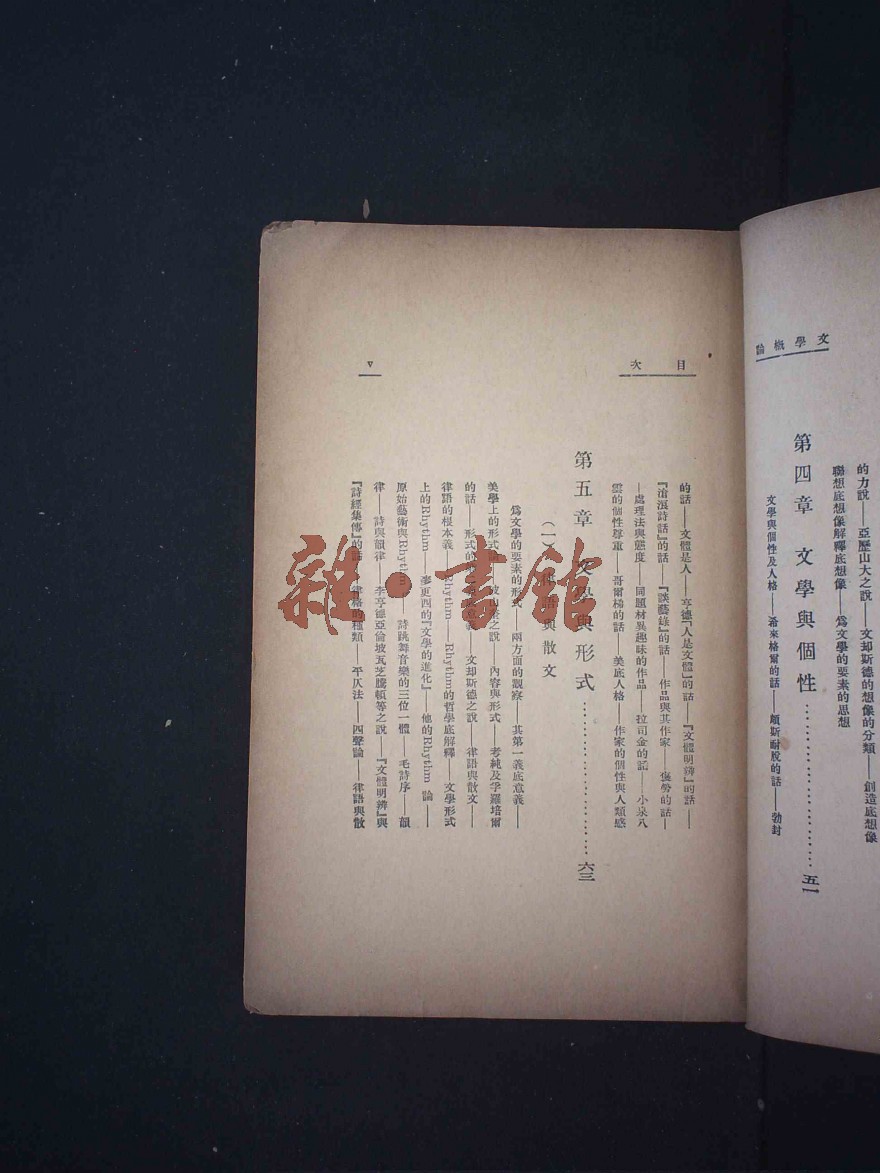 文學概論
的力說——亞歷山大之說——文却斯德的想像的分類——創造底想像
聯想底想像解釋底想像——爲文學的要素的思想
第四章 文學與個性……………………五一
文學與個性及人格——希來格爾的話——頗斯耐脫的話——勃封
目次
的話——文體是人——亨德『人是文體』的話——『文體明辨』的話——
『滄浪詩話』的話——『談藝錄』的話——作品與其作家——褒勞的話—
—處理法與態度——同題材異趣味的作品——拉司金的話——小泉八
雲的個性尊重——哥爾梯的話——美底人格——作家的個性與人類感
第五章 文學與形式……………………六三
(一) 律語與散文
爲文學的要素的形式——兩方面的觀察——其第一義底意義——
美學上的形式 之說——內容與形式——考純及孚羅培爾
的話——形式的 意義——文却斯德之說——律語與散文——
律語的根本義——Rhythm——Rhythm的哲學底解釋——文學形式
上的Rhythm——麥更西的『文學的進化』——他的Rhythm 論——
原始藝術與Rhythm——詩跳舞音樂的三位一體——毛詩序——韻
律——詩與韻律——李亨德亞倫坡瓦芝騰頓等之說——『文體明辨』與
『詩經集傳』的話——律格的種類——平仄法——四聲論——律語與散
v
雜·書館